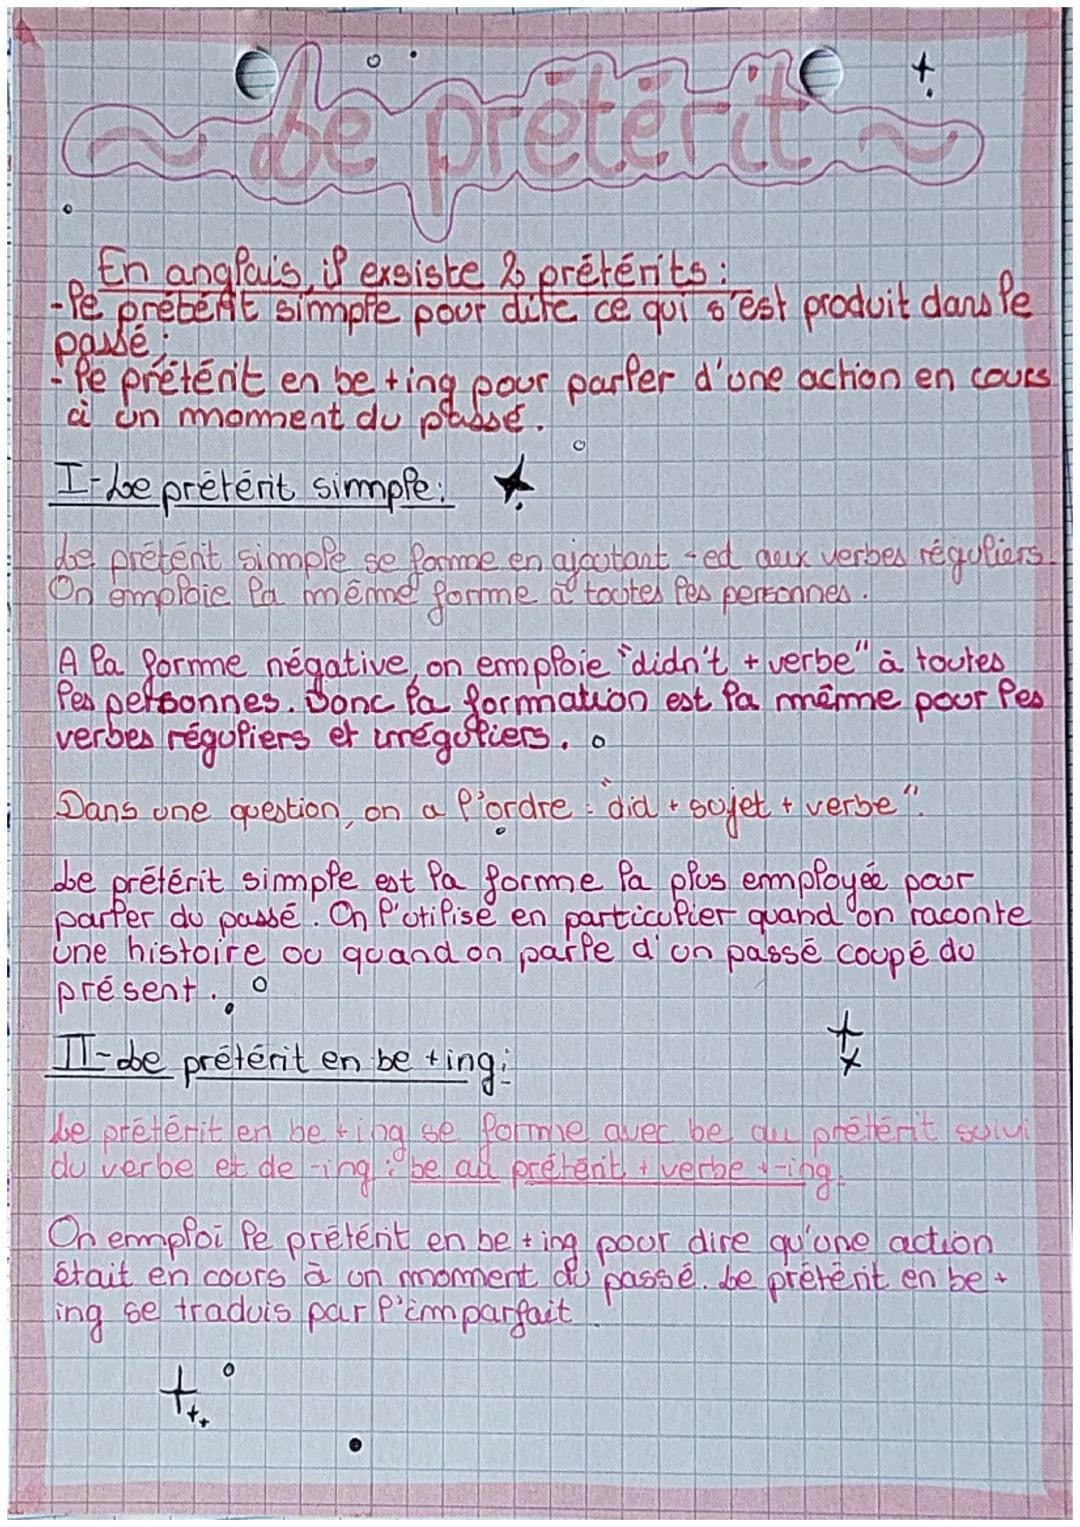 Le prétérit
En anglais, il exsiste 2 prétérits :
- le prétérit simple pour dire ce qui s'est produit dans le
passé ;
- le prétérit en be +ing pour parler d'une action en cours
à un moment du passé.
I- Le prétérit simple :
Le prétérit simple se forme en ajoutant -ed aux verbes réguliers.
On emploie la même forme à toutes les personnes.
A la forme négative, on emploie "didn't + verbe" à toutes
les personnes. Donc la formation est la même pour les
verbes réguliers et irréguliers.
Dans une question, on a l'ordre : "did + sujet + verbe".
Le prétérit simple est la forme la plus employée pour
parler du passé. On l'utilise en particulier quand on raconte
une histoire ou quand on parle d'un passé coupé du
présent.
II- Le prétérit en be +ing :
Le prétérit en be +ing se forme avec be au prétérit suivi
du verbe et de -ing : be au prétérit + verbe +-ing.
On emploi le prétérit en be +ing pour dire qu'une action
était en cours à un moment du passé. Le prétérit en be +
ing se traduis par l'imparfait.